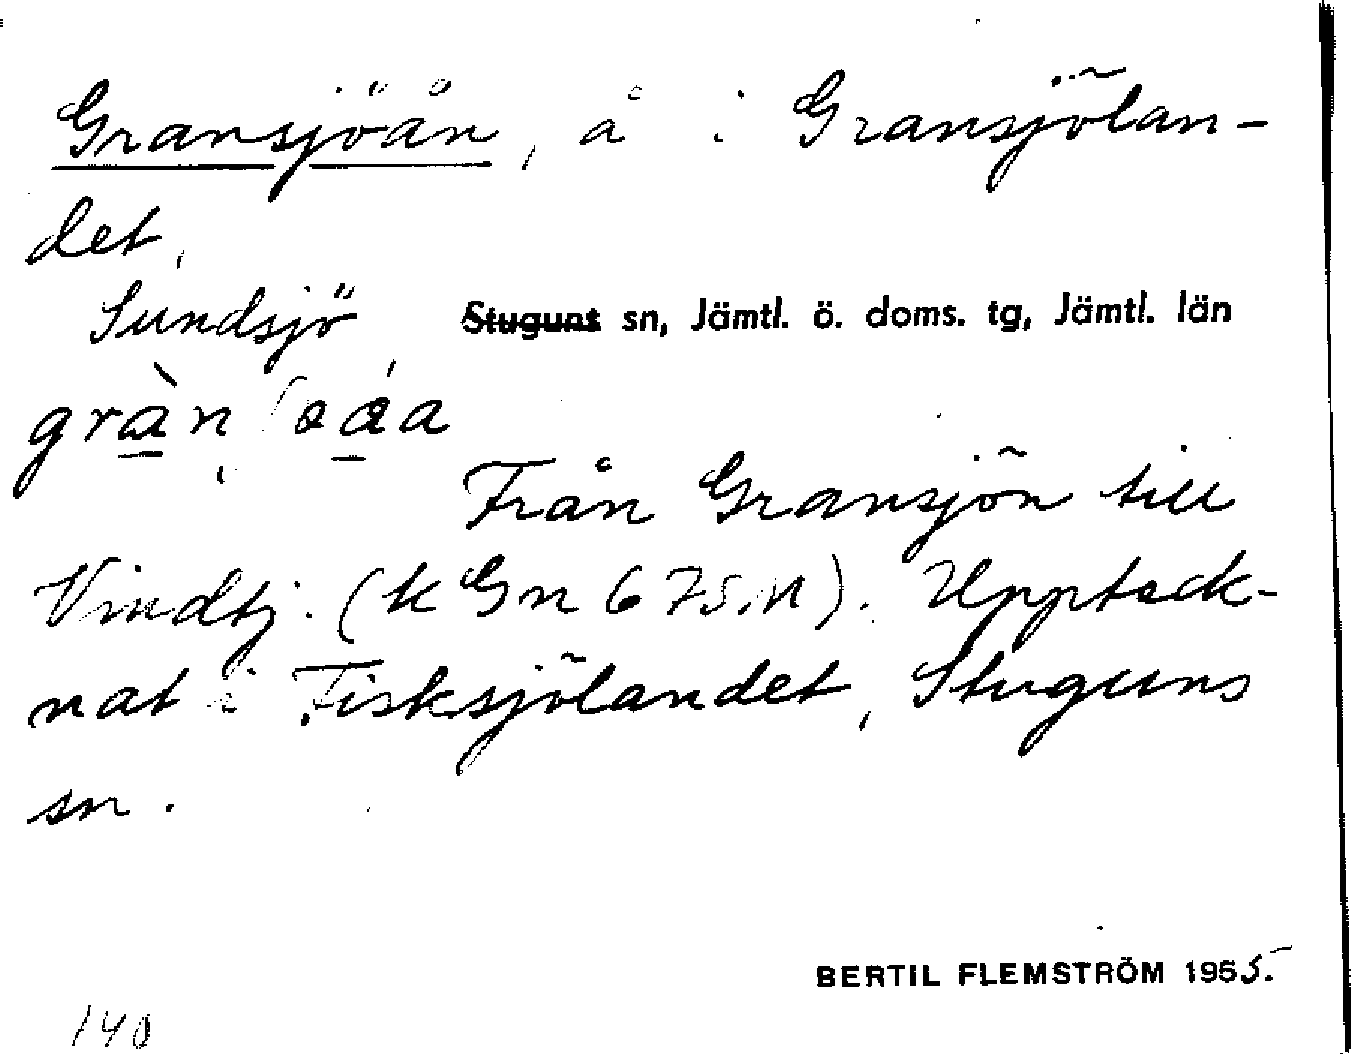 Gransjöån, å i Gransjölan-
det,
Sundsjö Stuguns sn, Jämtl. ö. doms. tg, Jämtl. län
Från Gransjön till
Vindtj. (k Gn 675 M). Uppteck-
nat i Fisksjölandet, Stuguns
sn.
BERTIL FLEMSTRÖM 1965.
140